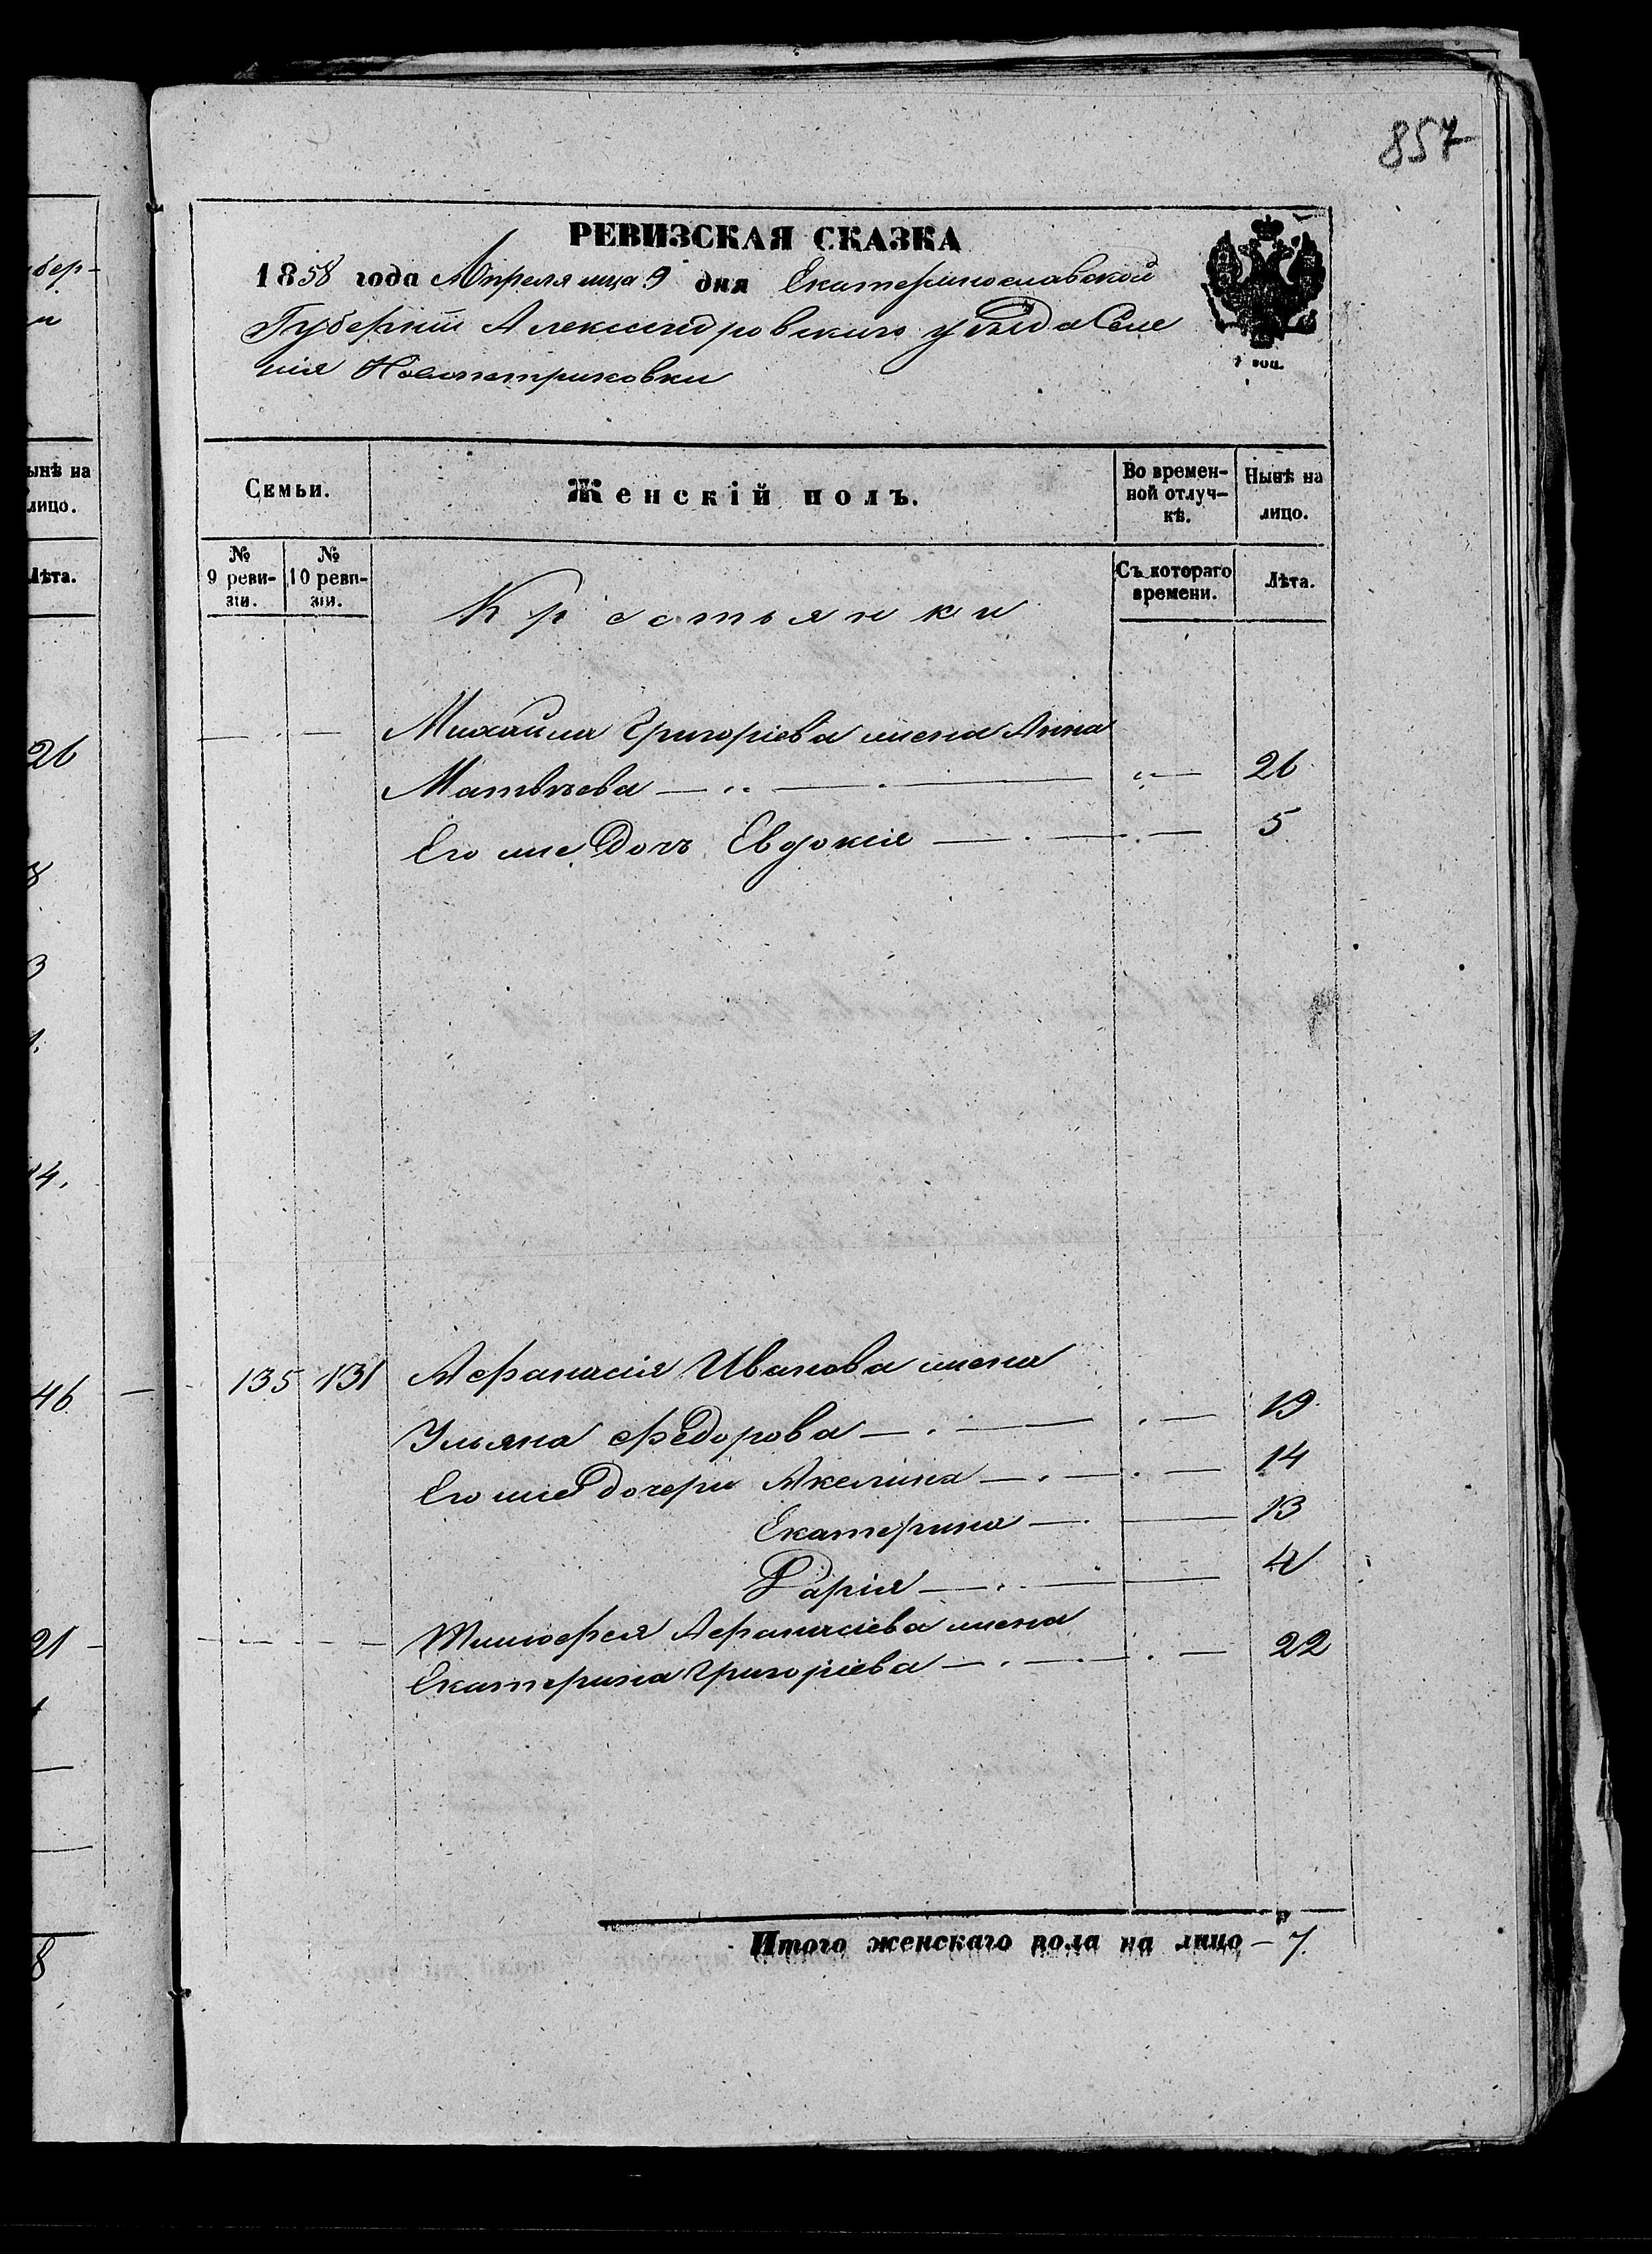 857
РЕВИЗСКАЯ СКАЗКА
1858 года Апреля мца 9 дня Екатеринославской
Губерніи Александровскаго уѣзда Селе
нія Новопетриковки
7 коп.
Семьи.
Женскій полъ.
Во времен-
ной отлуч-
кѣ.
Нынѣ на
лицо.
№
9 реви-
зіи.
№
10 реви-
зіи.
Крестьянки
Съ котораго
времени.
Лѣта.
Михайла Григоріева жена Анна
Матвѣева — 26
Его же Дочь Евдокія — 5
135 131 Афанасія Иванова жена
Ульяна Федорова — 19
Его же дочери Акелина — 14
Екатерина — 13
Дарія — 4
Тимофея Афанасіева жена
Екатерина Григоріева — 22
Итого женскаго пола на лицо — 7.
бер-
ынѣ на
лицо.
Лѣта.
26
8
3
14.
46
21
8